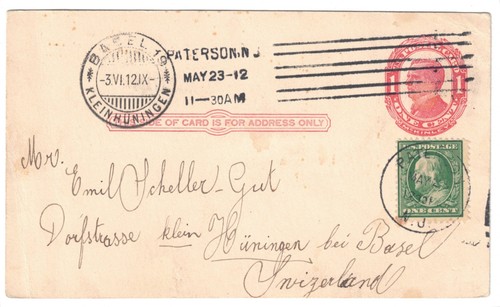 BASEL 19
-3.VI.12.IX-
KLEINHÜNINGEN
PATERSON, N.J.
MAY 23-12
11-30AM
OF CARD IS FOR ADDRESS ONLY
Mrs.
Emil Scheller-Gut
Dorfstrasse klein Hüningen bei Basel
Swizerland
U.S. POSTAGE
ONE CENT
N.J.